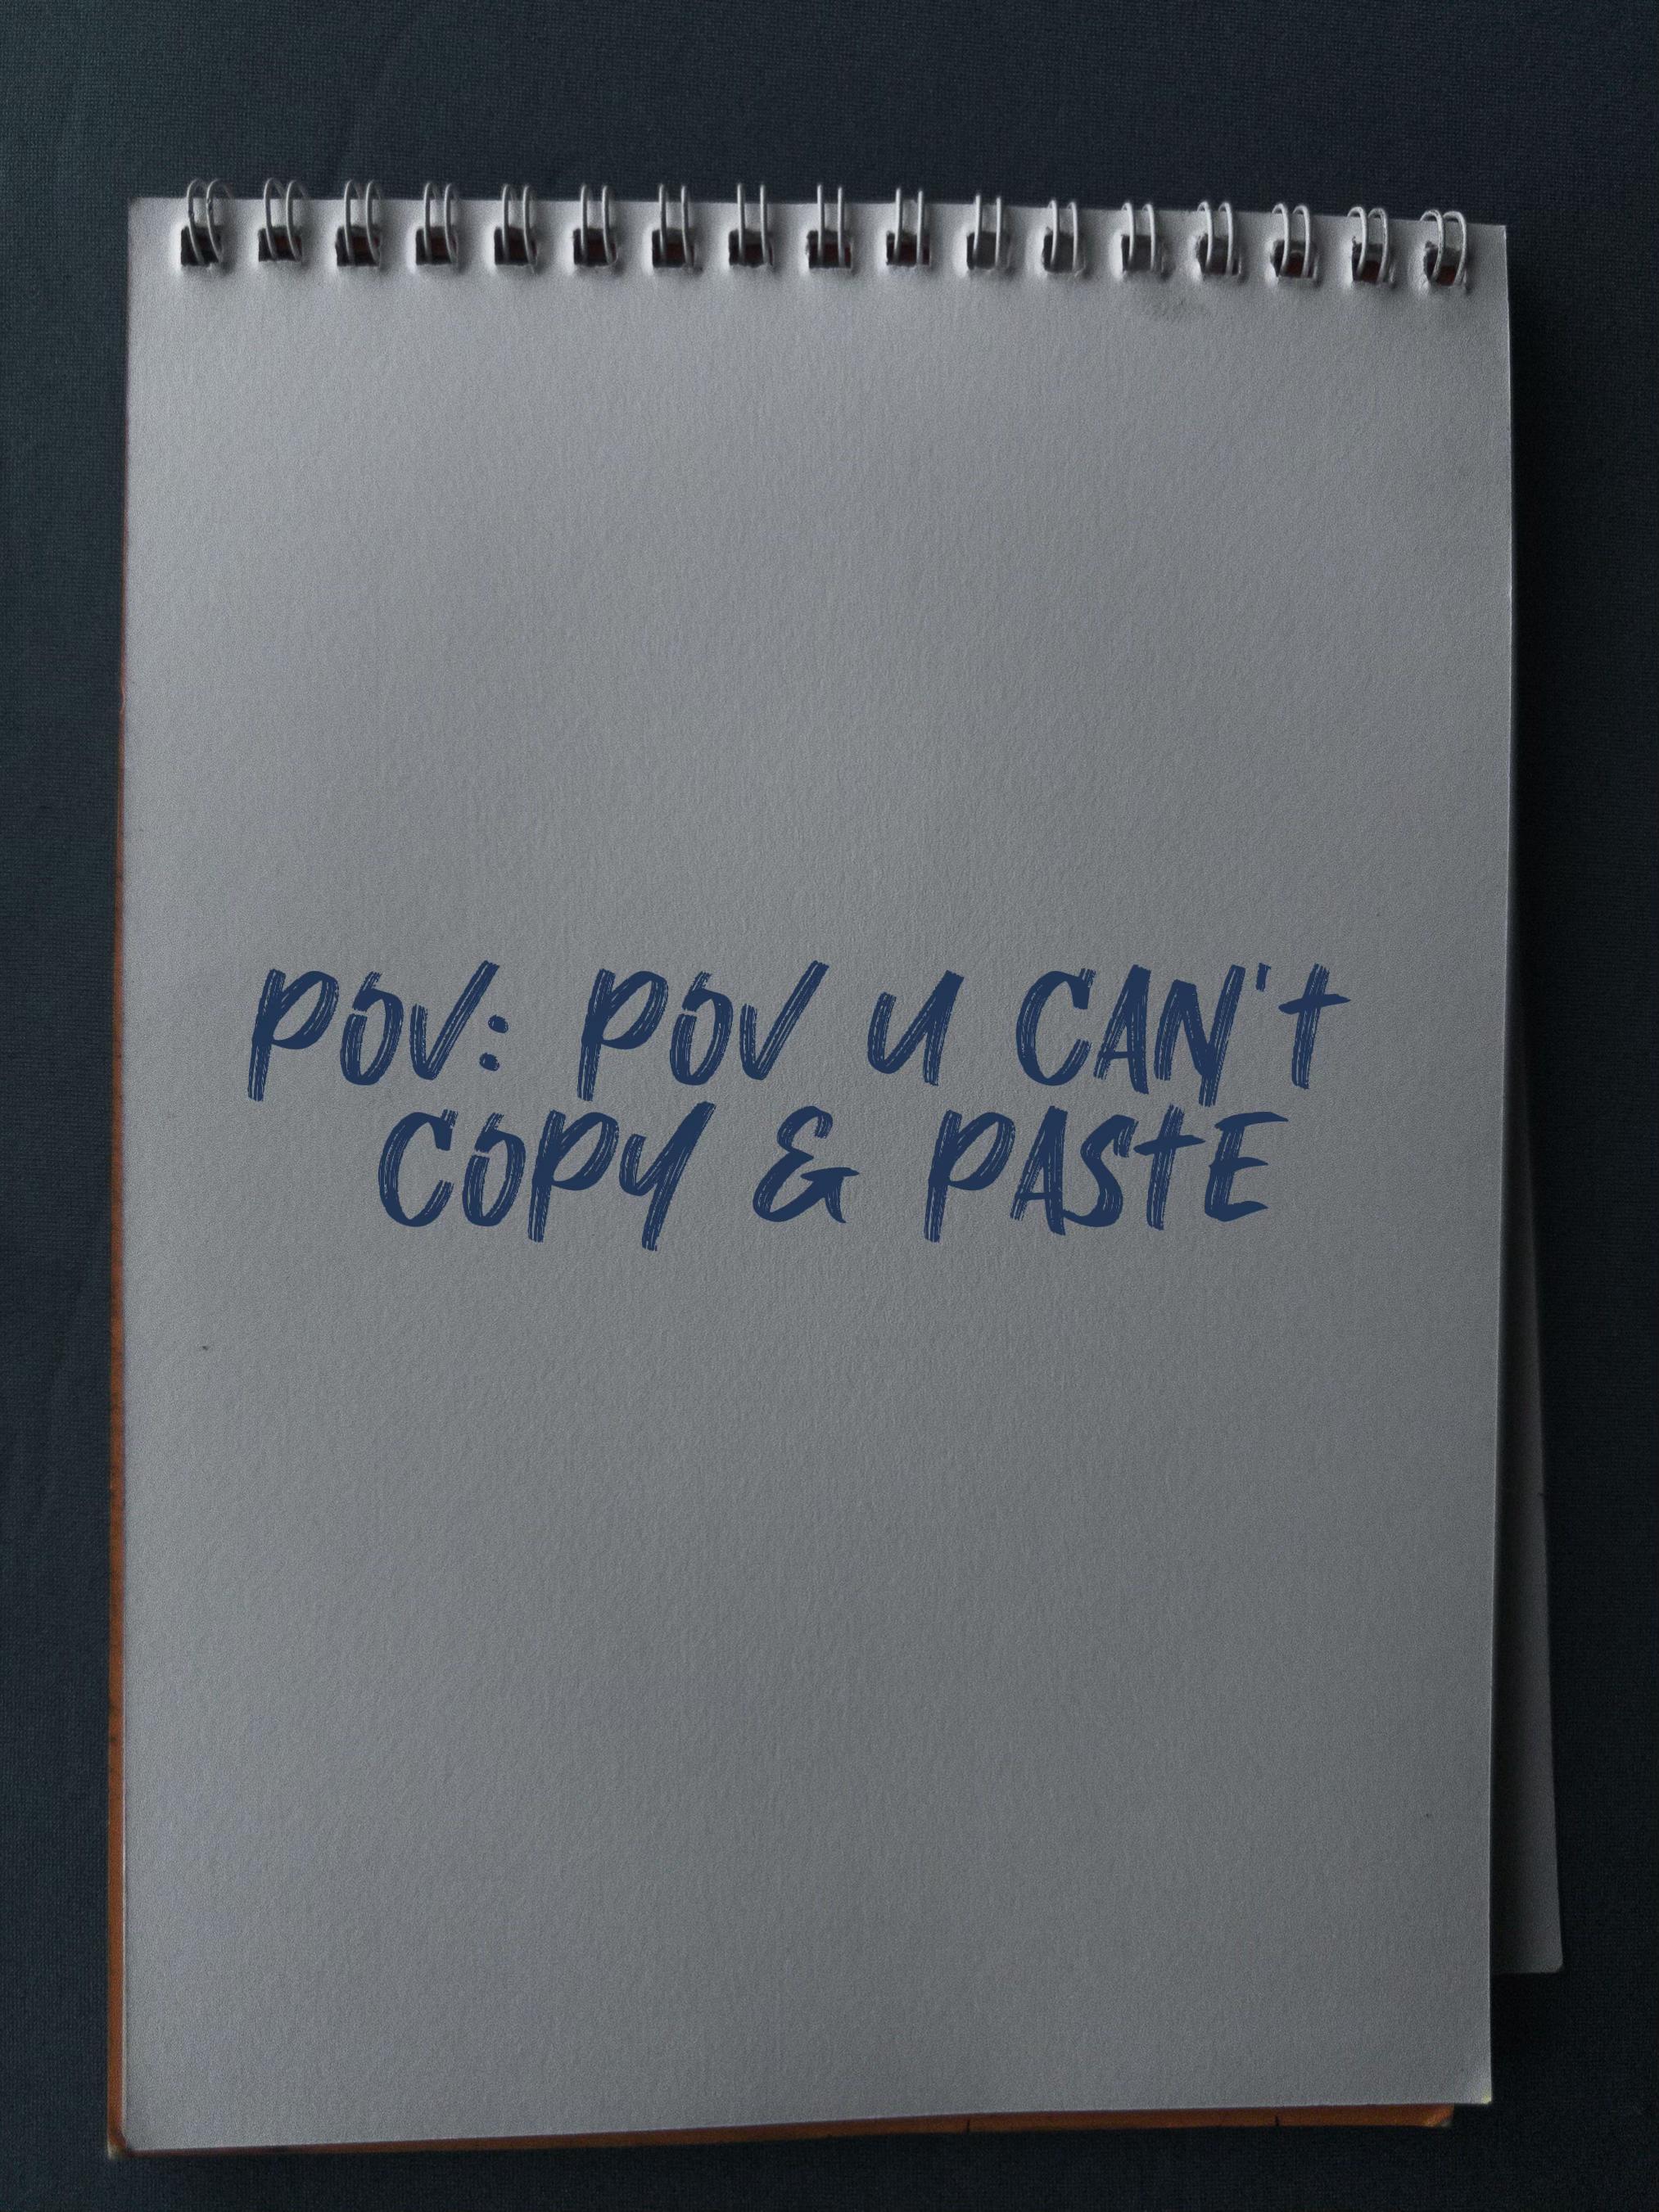 POV: POV U CAN't
COPY & PAStE